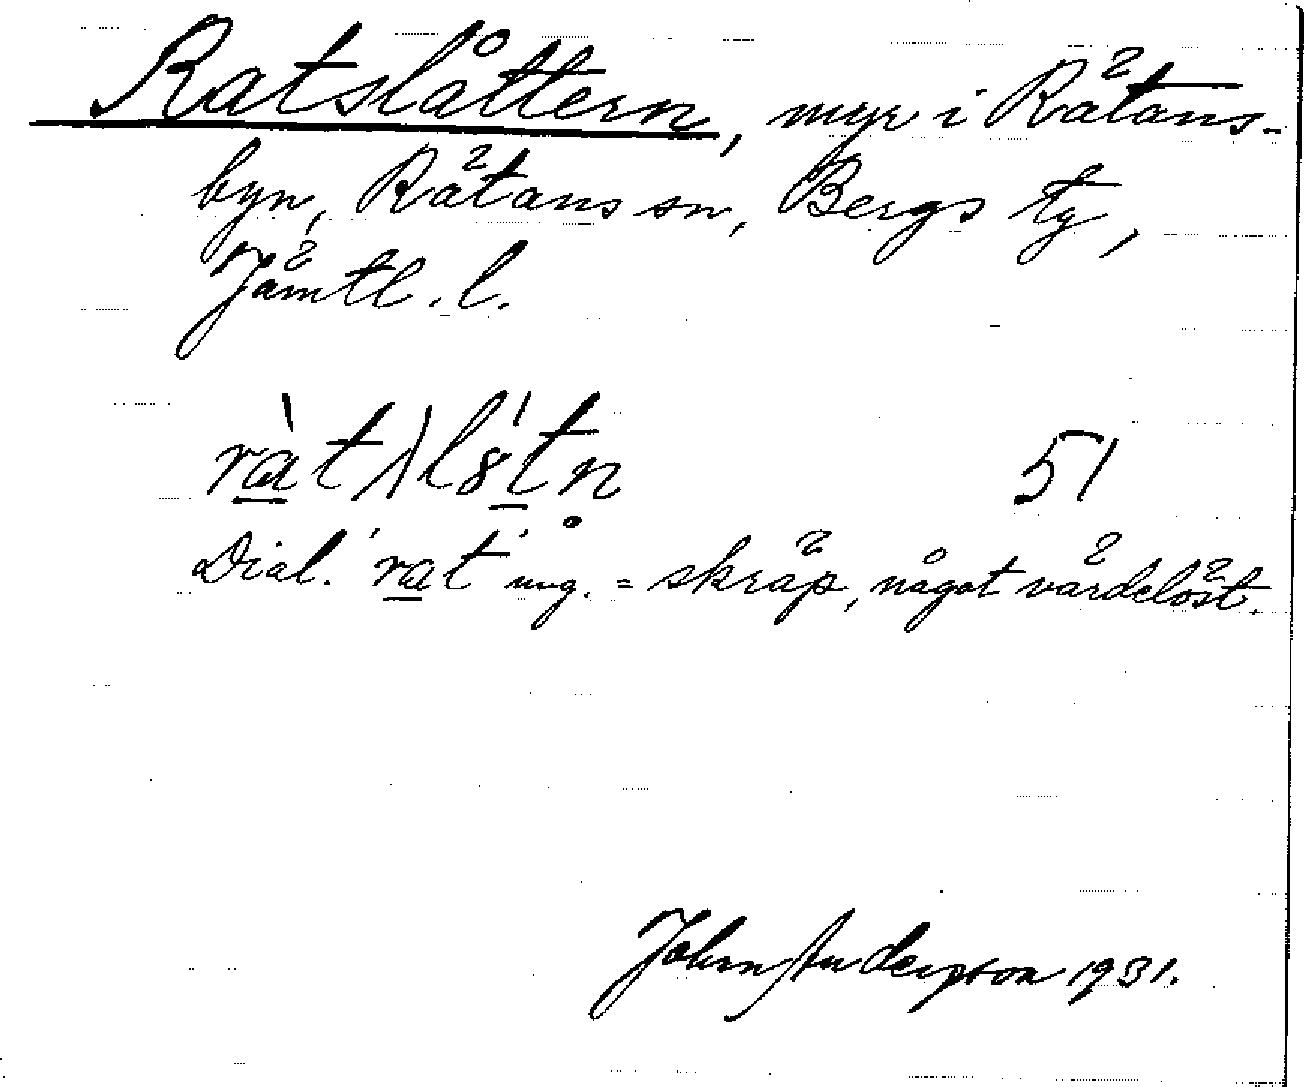 Ratslåttern, myr i Rätans-
byn, Rätans sn, Bergs tg,
Jämtl. l.
51
Dial. 'rat' ung. = skräp, något värdelöst.
John Anderson 1931.